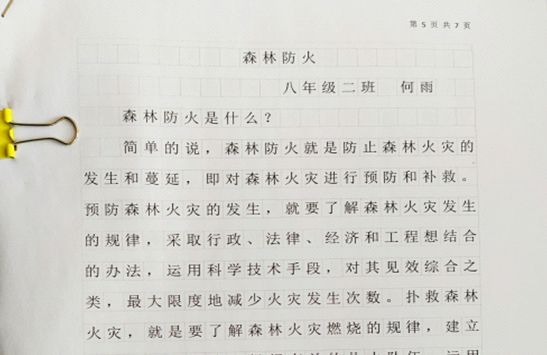 第 5 页 共 7 页
森林防火
八年级二班 何雨
森林防火是什么？
简单的说，森林防火就是防止森林火灾的
发生和蔓延，即对森林火灾进行预防和补救。
预防森林火灾的发生，就要了解森林火灾发生
的规律，采取行政、法律、经济和工程想结合
的办法，运用科学技术手段，对其见效综合之
类，最大限度地减少火灾发生次数。扑救森林
火灾，就是要了解森林火灾燃烧的规律，建立